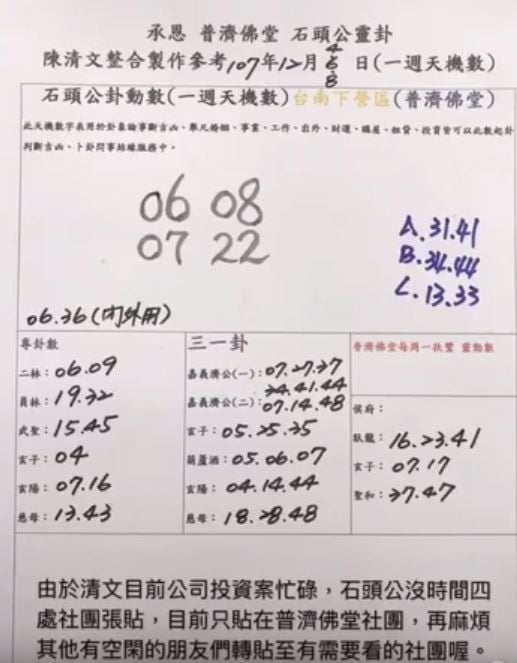 承恩 普濟佛堂 石頭公靈卦
陳清文整合製作參考107年12月4.6.8日(一週天機數)
石頭公卦動數(一週天機數)台南下營區(普濟佛堂)
此天機數字表用於卦象論事斷吉凶、舉凡婚姻、事業、工作、出外、財運、購屋、租貸、投資皆可以此數起卦
判斷吉凶、卜卦問事結緣服務中。
06 08
07 22
A.31.41
B.34.44
C.13.33
06.36(內外用)
尊卦數
二林:06.09
員林:19.32
武聖:15.45
玄子:04
玄陽:07.16
慈母:13.43
三一卦
嘉義濟公(一):07.27.37
34.41.44
嘉義濟公(二):07.14.48
玄子:05.25.35
葫蘆酒:05.06.07
玄陽:04.14.44
慈母:18.28.48
普濟佛堂每周一扶鸞 靈動數
侯府:
臥龍:16.23.41
玄子:07.17
聖和:37.47
由於清文目前公司投資案忙碌，石頭公沒時間四
處社團張貼，目前只貼在普濟佛堂社團，再麻煩
其他有空閑的朋友們轉貼至有需要看的社團喔。